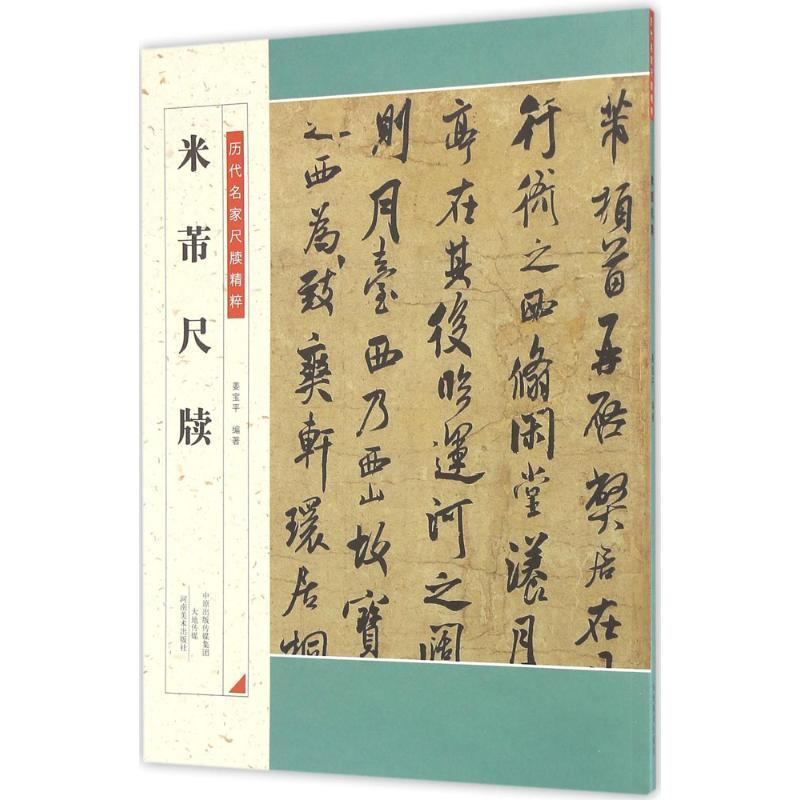 米芾尺牍
历代名家尺牍精粹
姜宝平 编著
中原出版传媒集团
大地传媒
河南美术出版社
芾頓首再啓弊居在
行衙之西翛閑堂漾月
亭在其後臨運河之闊
則月臺西乃西山故寶
之西為致爽軒環居桐